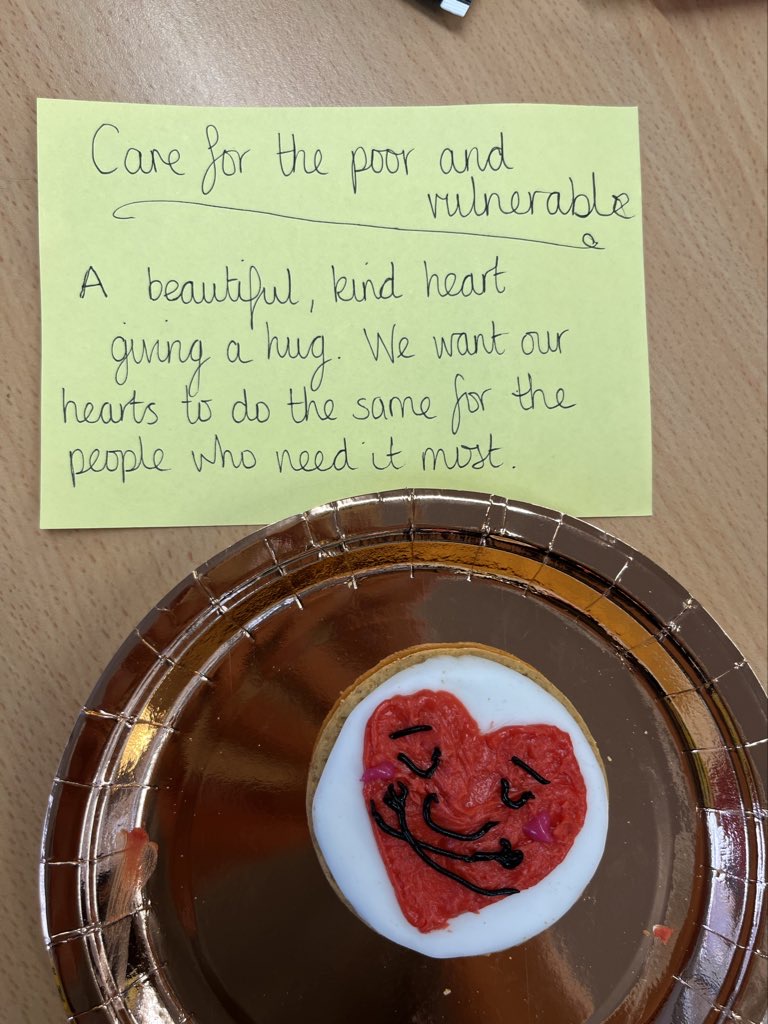 Care for the poor and
vulnerable
A beautiful, kind heart
giving a hug. We want our
hearts to do the same for the
people who need it most.